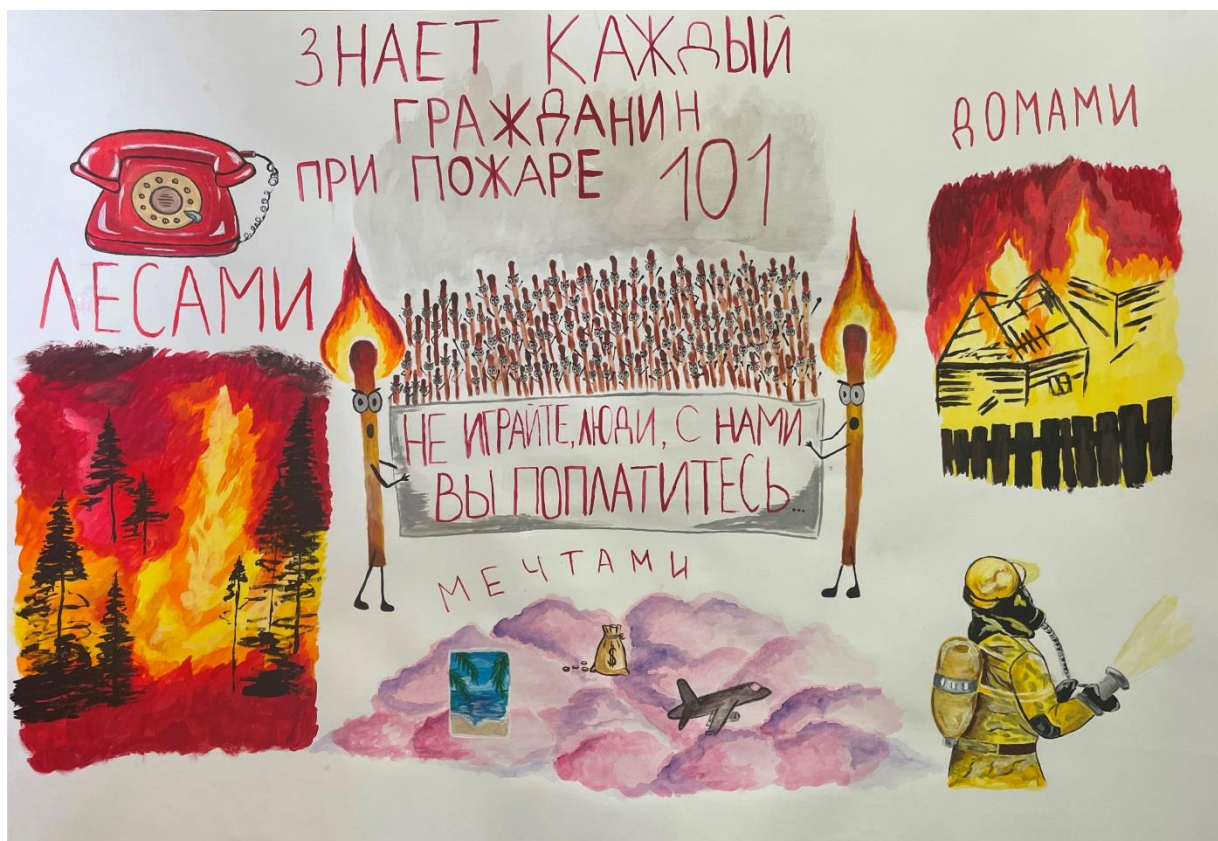 ЗНАЕТ КАЖДЫЙ
ГРАЖДАНИН
ПРИ ПОЖАРЕ 101
ДОМАМИ
ЛЕСАМИ
НЕ ИГРАЙТЕ, ЛЮДИ, С НАМИ
ВЫ ПОПЛАТИТЕСЬ...
МЕЧТАМИ
$